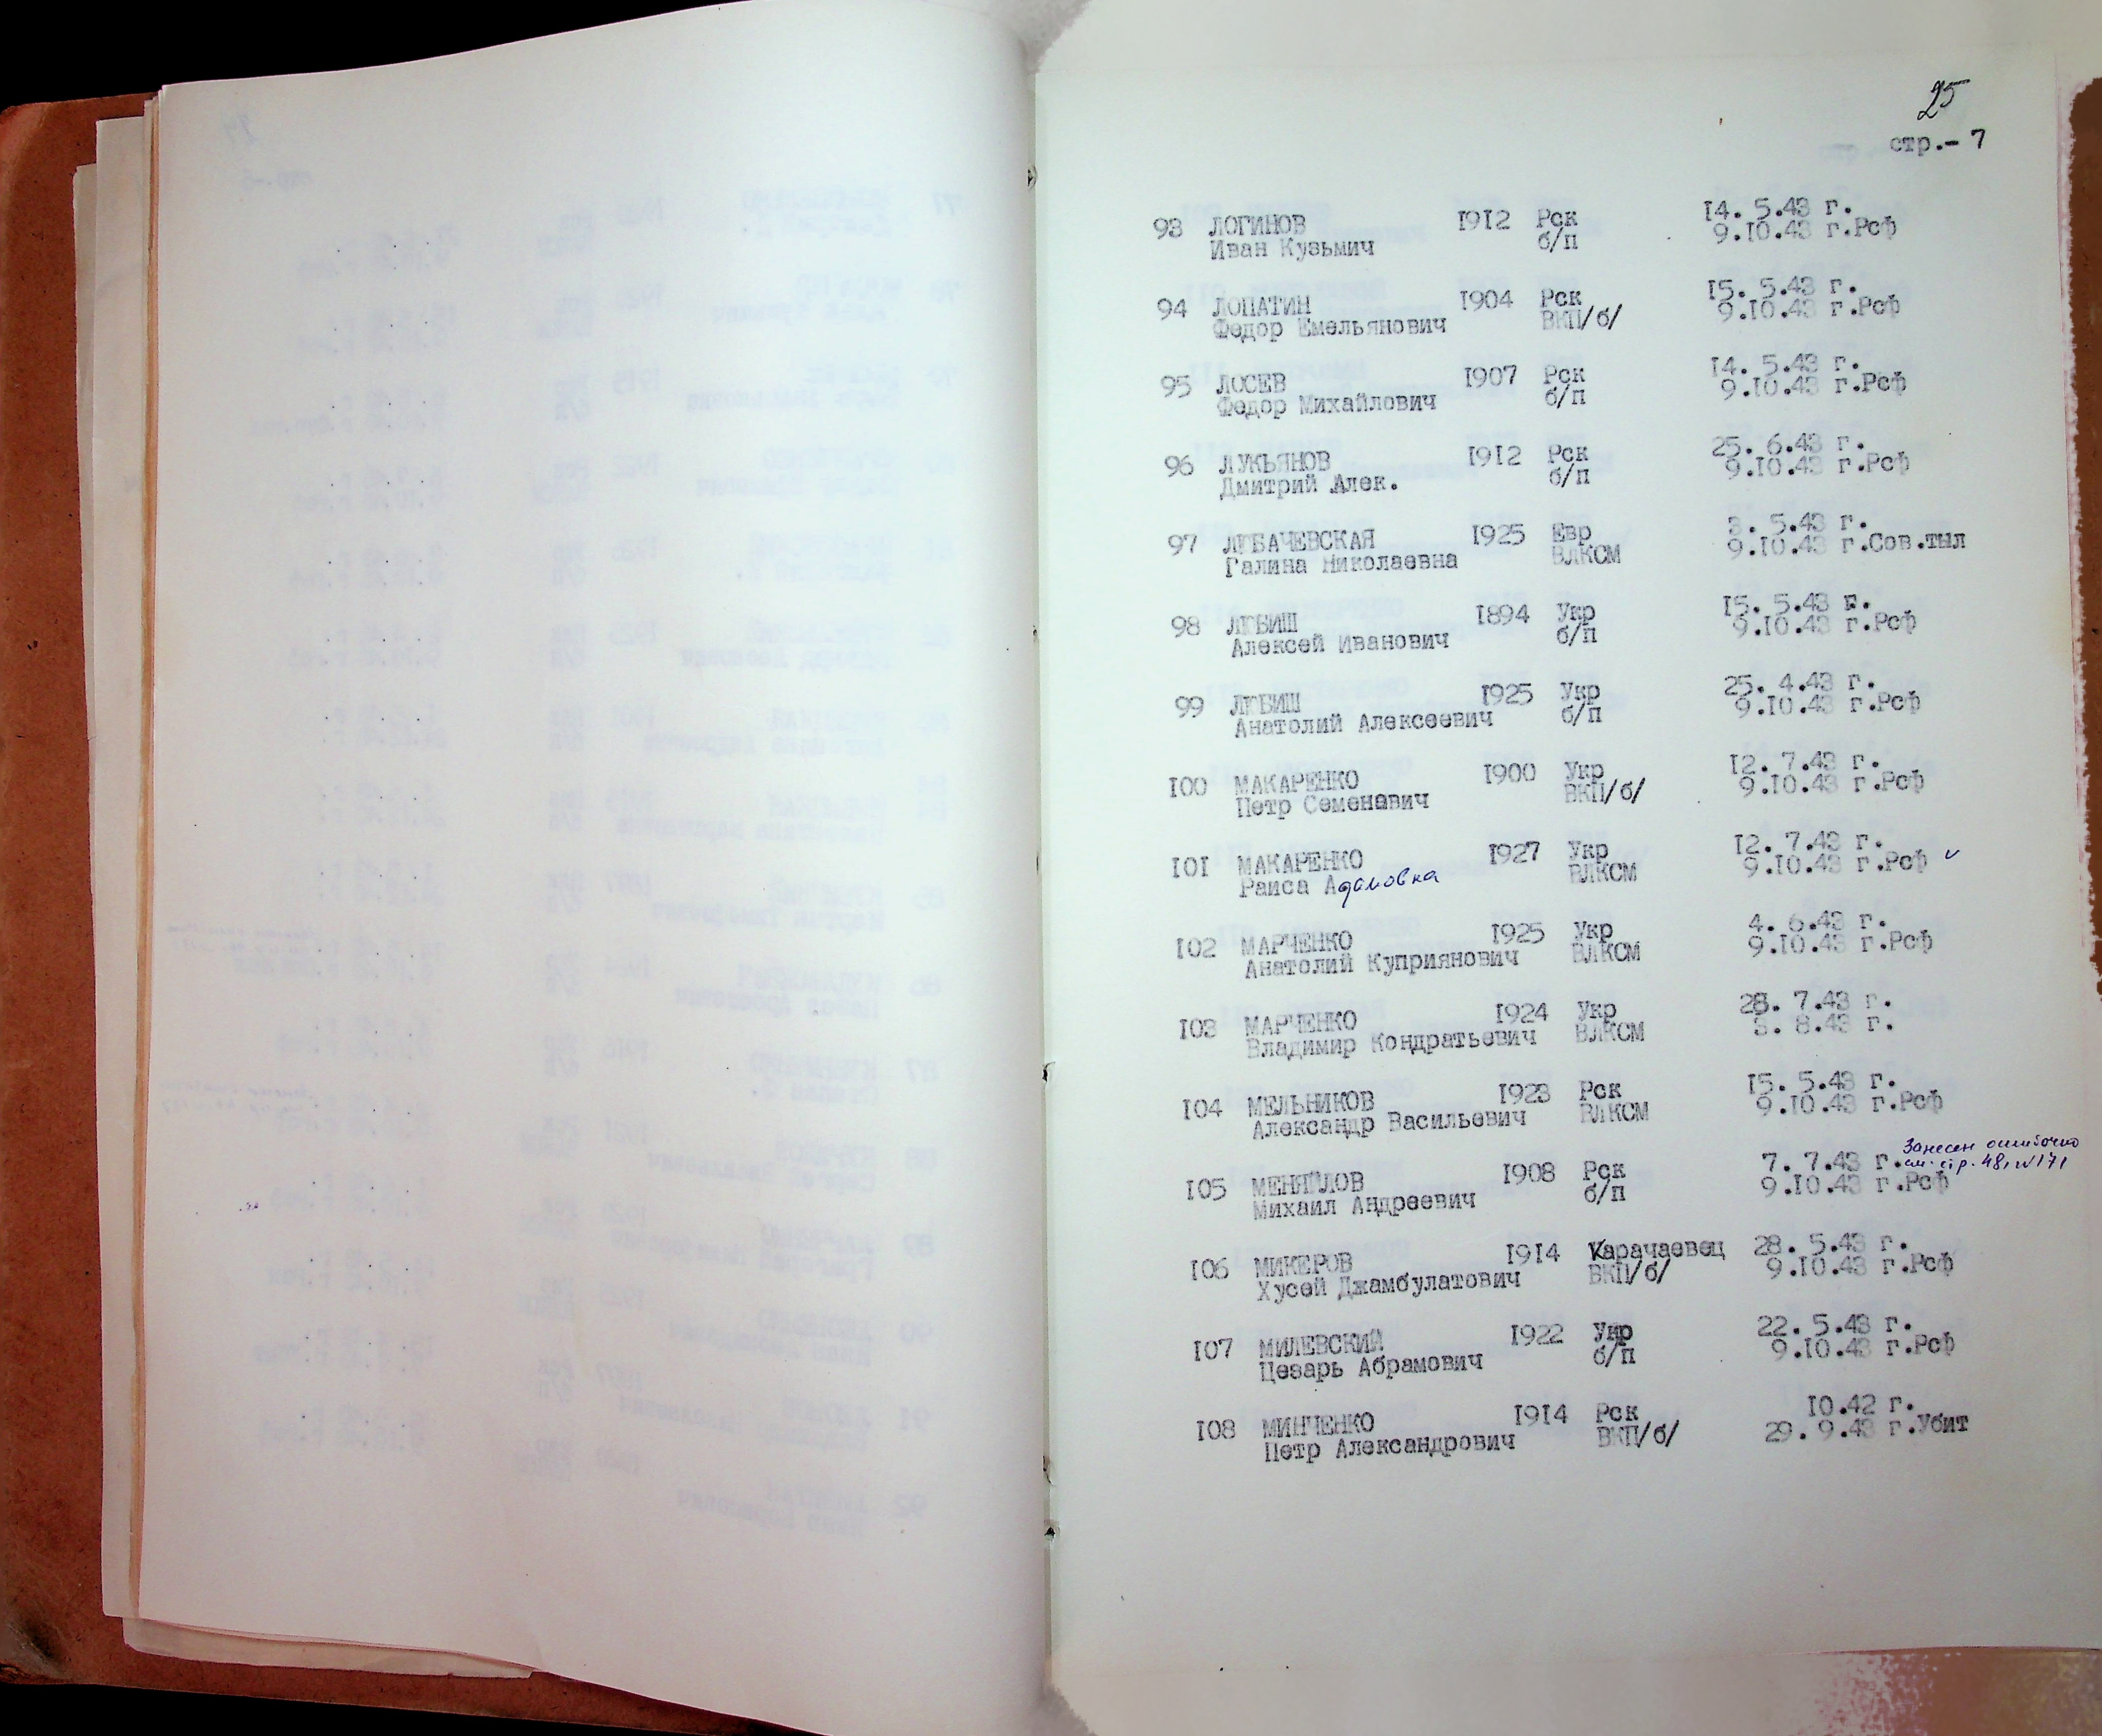 25
стр.- 7
93 ЛОГИНОВ 1912 Рск 14. 5.43 г.
Иван Кузьмич б/п 9.10.43 г.Рсф
94 ЛОПАТИН 1904 Рск 15. 5.43 г.
Федор Емельянович ВКП/б/ 9.10.43 г.Рсф
95 ЛОСЕВ 1907 Рск 14. 5.43 г.
Федор Михайлович б/п 9.10.43 г.Рсф
96 ЛУКЬЯНОВ 1912 Рск 25. 6.43 г.
Дмитрий Алек. б/п 9.10.43 г.Рсф
97 ЛЮБАЧЕВСКАЯ 1925 Евр 3. 5.43 г.
Галина Николаевна ВЛКСМ 9.10.43 г.Сов.тыл
98 ЛЮБИШ 1894 Укр 15. 5.43 г.
Алексей Иванович б/п 9.10.43 г.Рсф
99 ЛЮБИШ 1925 Укр 25. 4.43 г.
Анатолий Алексеевич б/п 9.10.43 г.Рсф
100 МАКАРЕНКО 1900 Укр 12. 7.43 г.
Петр Семенавич ВКП/б/ 9.10.43 г.Рсф
101 МАКАРЕНКО 1927 Укр 12. 7.43 г.
Раиса Адамовна ВЛКСМ 9.10.43 г.Рсф
102 МАРЧЕНКО 1925 Укр 4. 6.43 г.
Анатолий Куприянович ВЛКСМ 9.10.43 г.Рсф
103 МАРЧЕНКО 1924 Укр 28. 7.43 г.
Владимир Кондратьевич ВЛКСМ 8.43 г.
104 МЕЛЬНИКОВ 1923 Рск 15. 5.43 г.
Александр Васильевич ВЛКСМ 9.10.43 г.Рсф
Занесен ошибочно
105 МЕНЯЙЛОВ 1908 Рск 7. 7.43 г. см. стр. 48, №171
Михаил Андреевич б/п 9.10.43 г.Рсф
106 МИКЕРОВ 1914 Карачаевец 28. 5.43 г.
Хусей Джамбулатович ВКП/б/ 9.10.43 г.Рсф
107 МИЛЕВСКИЙ 1922 Укр 22. 5.43 г.
Цезарь Абрамович б/п 9.10.43 г.Рсф
108 МИНЧЕНКО 1914 Рск 10.42 г.
Петр Александрович ВКП/б/ 29. 9.43 г.Убит